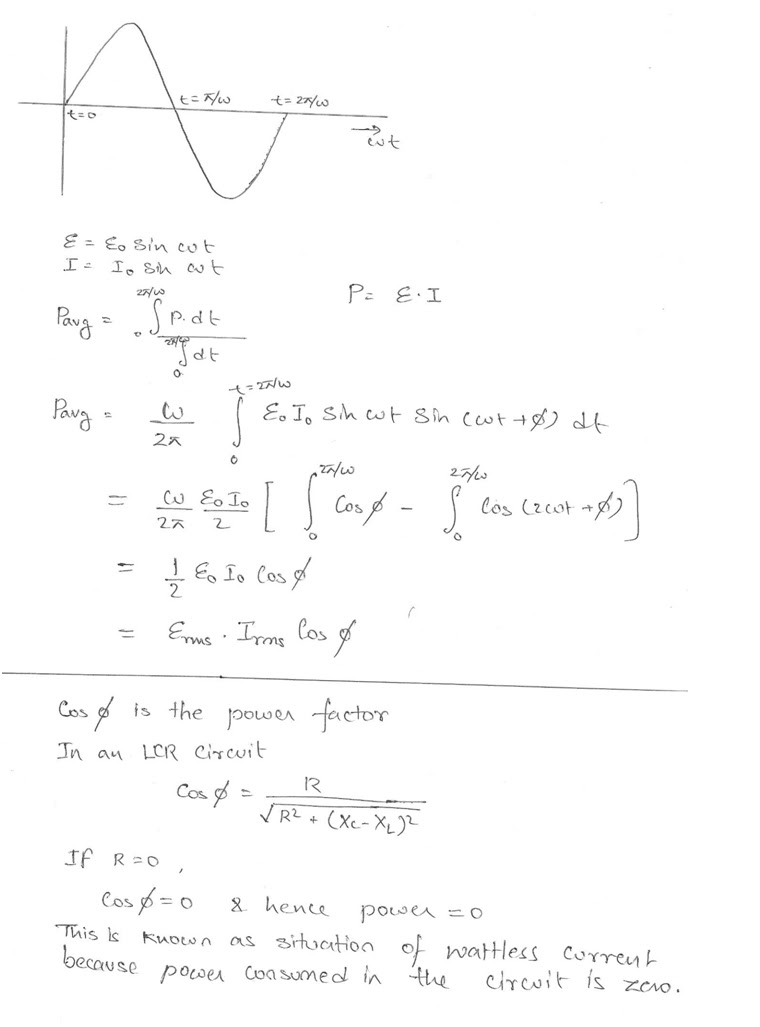 t=π/ω t=2π/ω
t=0
→ ωt
ε = ε₀ sin ωt
I = I₀ sin ωt
P= ε·I
Pavg = ₀∫^2π/ω P·dt / ₀∫^2π/ω dt
Pavg = ω/2π ∫₀^t=2π/ω ε₀ I₀ sin ωt sin (ωt+ϕ) dt
= ω/2π ε₀I₀/2 [ ∫₀^2π/ω Cosϕ - ∫₀^2π/ω Cos (2ωt+ϕ)]
= 1/2 ε₀ I₀ Cosϕ
= Erms · Irms Cos ϕ
Cos ϕ is the power factor
In an LCR Circuit
Cosϕ = R / √R² + (Xc-XL)²
If R=0 ,
Cosϕ=0 & hence power =0
This is known as situation of wattless current
because power consumed in the circuit is zero.